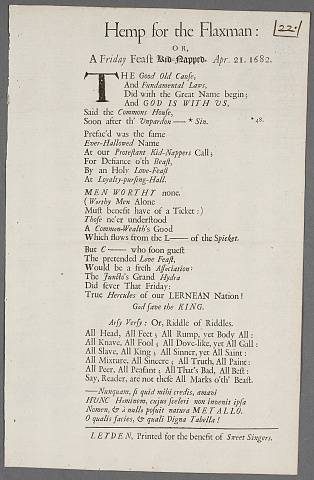 22.
Hemp for the Flaxman:
OR,
A Friday Feast Kid-Napp'd. Apr. 21. 1682.
THE Good Old Cause,
And Fundamental Laws,
Did with the Great Name begin;
And GOD IS WITH US,
Said the Commons House,
Soon after th' Unpardon—— * Sin. * 48.
Prefac'd was the same
Ever-Hallowed Name
At our Protestant Kid-Nappers Call;
For Defiance o'th Beast,
By an Holy Love-Feast
At Loyalty-pursing-Hall.
MEN WORTHY none.
(Worthy Men Alone
Must benefit have of a Ticket:)
Those ne'er understood
A Common-Wealth's Good
Which flows from the L—— of the Spicket.
But C—— who soon guest
The pretended Love Feast,
Would be a fresh Association:
The Juncto's Grand Hydra
Did fever That Friday:
True Hercules of our LERNEAN Nation!
God save the KING.
Arsy Versy: Or, Riddle of Riddles.
All Head, All Feet; All Rump, yet Body All:
All Knave, All Fool; All Dove-like, yet All Gall:
All Slave, All King; All Sinner, yet All Saint:
All Mixture, All Sincere; All Truth, All Paint:
All Peer, All Peasant; All That's Bad, All Best:
Say, Reader, are not these All Marks o'th' Beast.
——Nunquam, si quid mihi credis, amavi
HUNC Hominem, cujus sceleri non invenit ipsa
Nomen, & à nullo posuit natura METALLO.
O qualis facies, & quali Digna Tabella!
LEYDEN, Printed for the benefit of Sweet Singers.